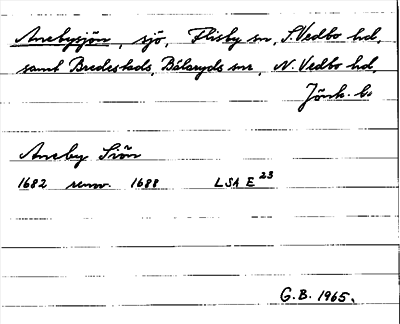 Anebysjön, sjö, Flisby sn, S. Vedbo hd,
samt Bredestads, Bälaryds snr, N. Vedbo hd,
Jönk. l.
Aneby Siön
1682 renov. 1688 LSA E 23
G.B. 1965.